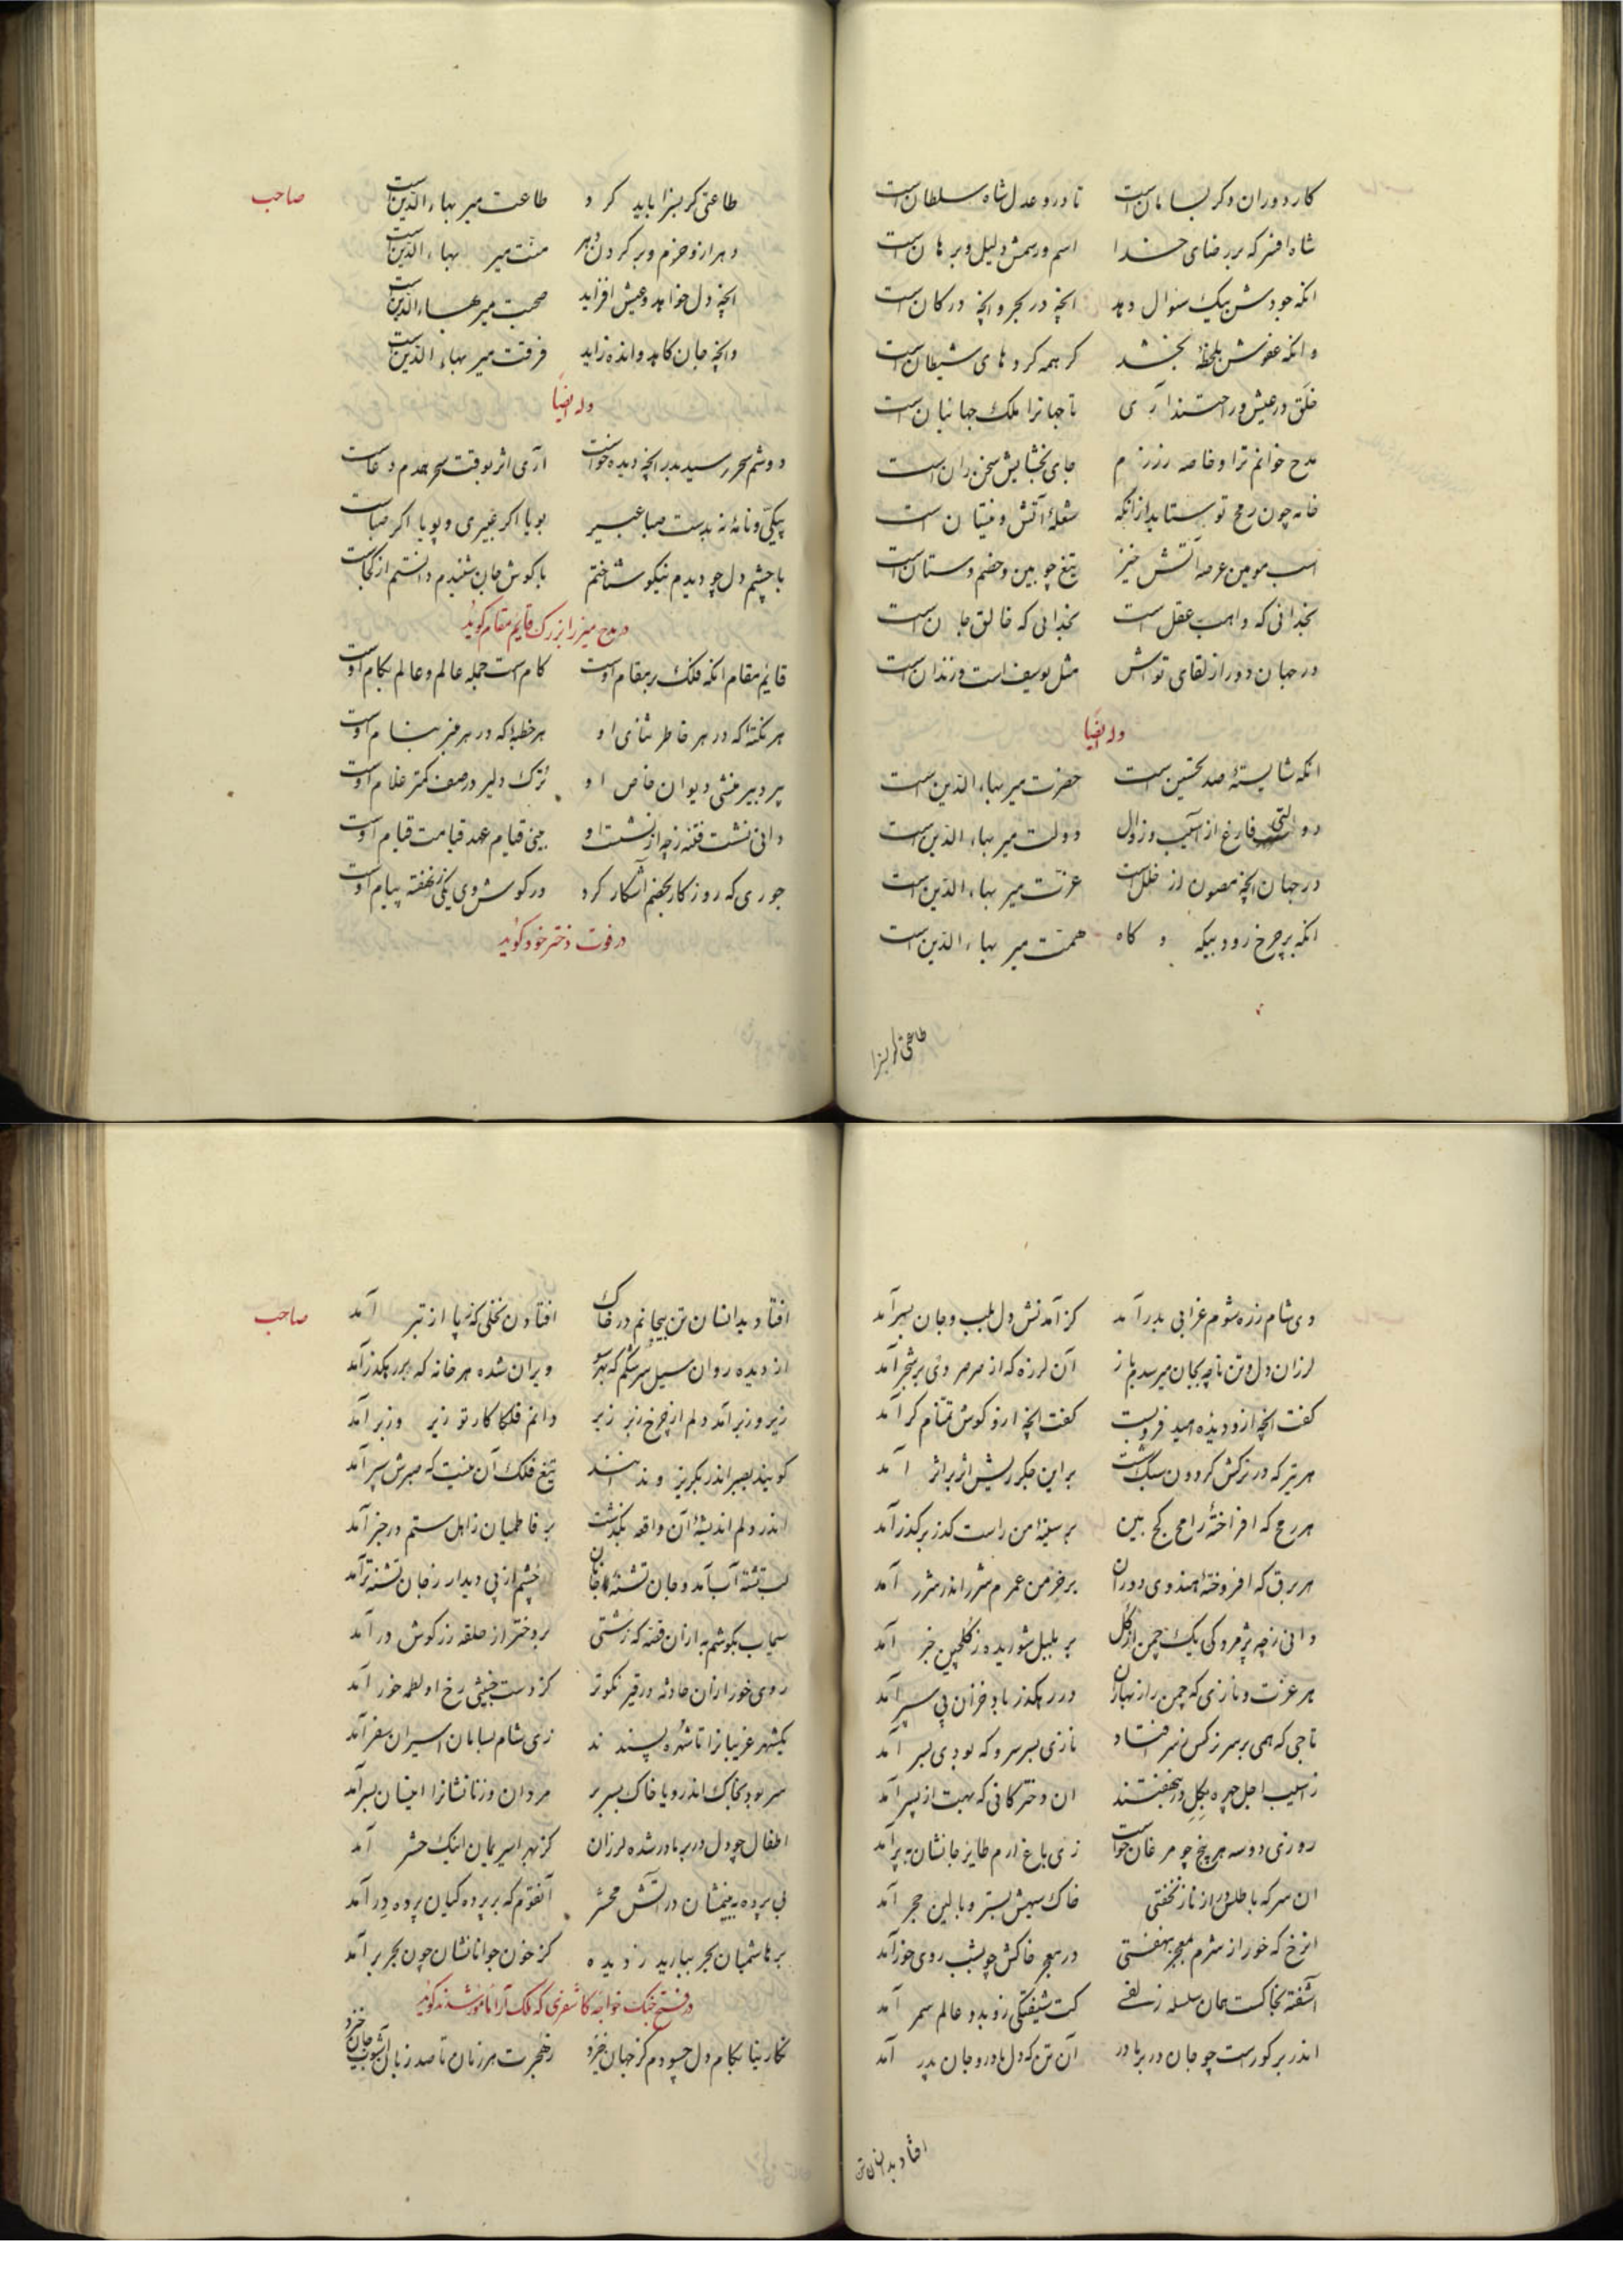 کار دوران دگر بسامان است تا درو عدل شاه سلطان است
شاه افسر که بر رضای خدا اسم و رسمش دلیل و برهان است
انکه جودش بیک سئوال دهد انچه در بحر و انچه در کان است
وانکه عفوش بلحظهٔ بخشد گر همه کردهای شیطان است
خلق در عیش و راحتند آری تا جهانرا ملک جهانبان است
مدح خوانم ترا و خاصه رزم جای بخشایش سخن ران است
خامه چون رمح تو ستاید ازانکه شعلهٔ آتش و نیستان است
اسب مومین عرصه آتش خیز تیغ چوبین و خصم دستان است
بخدائی که واهب عقل است بخدائی که خالق جان است
در جهان دور از لقای تواش مثل یوسف است و زندان است
وله ایضاً
انکه شایستهٔ صد تحسین است حضرت میر بهاء الدین است
دولتی فارغ از آسیب و زوال دولت میر بهاء الدین است
در جهان انچه مصون از خلل است عزت میر بهاء الدین است
انکه بر چرخ رود بیگه و گاه همت میر بهاء الدین است
طاعتی گر بسزا
صاحب
طاعتی گر بسزا باید کرد طاعت میر بهاء الدین است
منت میر بهاء الدین است
انچه دل خواهد و عیش افزاید صحبت میر بهاء الدین است
وانچه جان کاهد و انده زاید فرقت میر بهاء الدین است
وله ایضاً
دوشم سحر رسید بدر انچه دیده خواست آری اثر بوقت سحر همدم دعاست
پیکی و نامهٔ نه بدست صبا عبیر بویا اگر عبیری و پویا اگر صباست
با چشم دل چو دیدم نیکو شناختم با گوش جان شنیدم دانستم از کجاست
در مدح میرزا بزرک قایم مقام گوید
قایم مقام انکه فلک بر مقام اوست کام است جمله عالم و عالم بکام اوست
هر نکتهٔ که در هر خاطر ثنای او هر خطبهٔ که در هر منبر بنام اوست
پیر دبیر منشی دیوان خاص او ترک دلیر در صف کمتر غلام اوست
دانی نشست فتنه ز چه از نشست او بینی قیام عهد قیامت قیام اوست
جوری که روزگار بخصم آشکار کرد در گوش وی یکی ز نهفته پیام اوست
در فوت دختر خود گوید
دی شام ز ره شوم غرابی بدر آمد کز آمدنش دل بلب و جان بسر آمد
لرزان دل و تن تا چه بجان میرسدم باز آن لرزه که از صرصر وی بر شجر آمد
گفت انچه ازو دیده امید فروبست گفت انچه ازو گوش تمنام کر آمد
هر تیر که در ترکش گردون سبک است بر این جگر ریش اثر بر اثر آمد
هر رمح که افراختهٔ رامح کج بین بر سینهٔ من راست گذر بر گذر آمد
هر برق که افروختهٔ هندوی دوران بر خرمن عمرم شرر اندر شرر آمد
دانی ز چه پژمردگی یک چمن از گل بر بلبل شوریده ز گلچین خبر آمد
هر عزت و نازی که چمن را ز بهاران در رهگذر باد خزان پی سپر آمد
تاجی که همی بر سر نرگس نیز افتاد نازی بسر سرو که بودی بسر آمد
ز آسیب اجل چهره بگل در بنهفتند ان دختر کانی که بهت از پسر آمد
روزی دو سه هر پنج چو مرغان خواست زی باغ ارم طایر جانشان به پر آمد
ان سر که باطلس در از ناز نخفتی خاک سیهش بستر و بالین حجر آمد
انرخ که خور از شرم بمعجر بنهفتی در معجر خاکش چو بشب روی خور آمد
آشفته بخاکست همان سلسله زلفی کت شیفتگی زو بدو عالم سمر آمد
اندر بر گورست چو جان در بر مادر آن تن که دل مادر و جان پدر آمد
افتاد بدانسان تن
صاحب
افتاد بدانسان تن بیجانم در خاک افتادن نخلی که ز پا از تبر آمد
از دیده روان سیل سرشکم که بهر سو ویران شده هر خانه که بر رهگذر آمد
زیر و زبر آمد دلم از چرخ زبر زیر دانم فلکا کار تو زیر و زبر آمد
گویند بصبر اندر بگریز و ندانند تیغ فلک آن نیست که صبرش سپر آمد
اندر دلم اندیشهٔ آن واقعه بگذشت بر فاطمیان ز اهل ستم در خبر آمد
لب تشنه آب آمد و جان تشنه جانان چشم از پی دیدار ز جان تشنه تر آمد
سیماب بگوشم به ازان قصه که زشتی بر دختر از حلقه زر گوش در آمد
روی خور ازان حادثه در قیر نکوتر کز دست خبیثی رخ او لطمه خور آمد
یکشهر غریبانرا تا شهره پسندند زی شام بسامان اسیران سفر آمد
سر بود بخاک اندر و یا خاک بسر بر مردان و زنانشانرا اینسان بسر آمد
اطفال چو دل در بر مادر شده لرزان کز بهر اسیریمان اینک حشر آمد
بی پرده ببینمشان در آتش محشر آنقوم که بر پردگیان پرده در آمد
بر هاشمیان بحر ببارید ز دیده کز خون جوانانشان چون بحر بر آمد
در فتح جنگ خواجه کاشغری که ملک آرا مامور شدند گوید
نگارینا بکام دل چسودم کز جهان خیزد ز هجرت هر زمان تا صد زبان آشوب جان خیزد